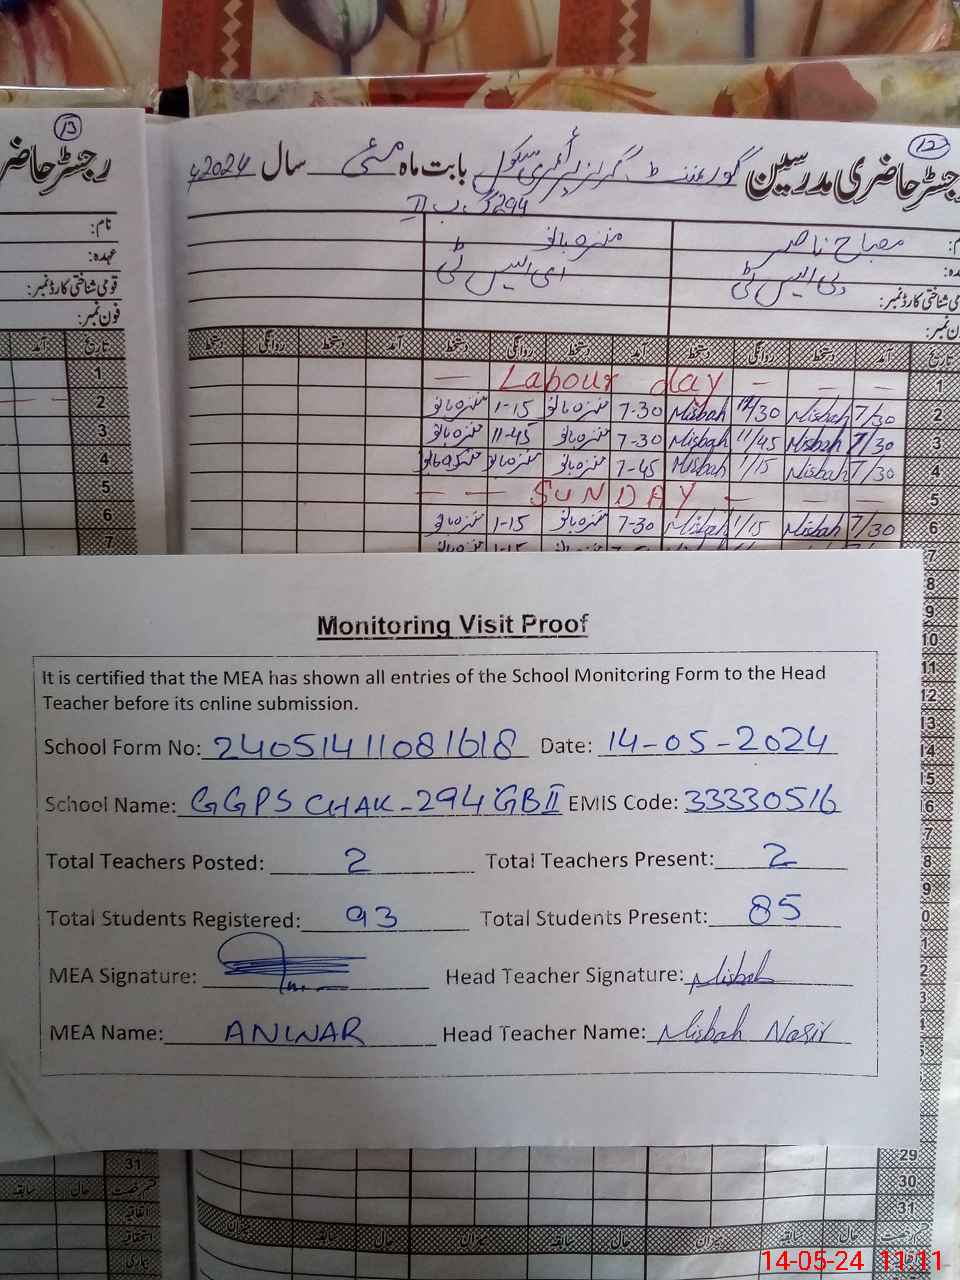 13
رجسٹر حاضر
نام:
عہدہ:
قومی شناختی کارڈ نمبر:
فون نمبر:
آمد تاریخ
1
2
3
4
5
6
7
12
رجسٹر حاضری مدرسین گورنمنٹ گرلز پرائمری سکول بابت ماہ مئی سال 2024ء
294 گ ب II
مصباح ناصر منزہ بانو
پی ایس ٹی ای ایس ٹی
می شناختی کارڈ نمبر:
تاریخ آمد دستخط روانگی دستخط آمد دستخط روانگی دستخط آمد دستخط روانگی دستخط
1 — Labour day — — —
2 7/30 Misbah 12/30 Misbah 7-30 منزہ بانو 1-15 منزہ بانو
3 7/30 Misbah 11/45 Misbah 7-30 منزہ بانو 11-45 منزہ بانو
4 7/30 Misbah 1/15 Misbah 7-45 منزہ بانو منزہ بانو
5 — — SUNDAY — — —
6 7/30 Misbah 1/15 Misbah 7-30 منزہ بانو 1-15 منزہ بانو
7
8
9
10
11
12
13
14
15
6
7
8
9
0
1
2
3
Monitoring Visit Proof
It is certified that the MEA has shown all entries of the School Monitoring Form to the Head
Teacher before its online submission.
School Form No: 24051411081618 Date: 14-05-2024
School Name: GGPS CHAK-294 GB II EMIS Code: 33330516
Total Teachers Posted: 2 Total Teachers Present: 2
Total Students Registered: 93 Total Students Present: 85
MEA Signature: Head Teacher Signature: Misbah
MEA Name: ANWAR Head Teacher Name: Misbah Nasir
31
قسم رخصت حال سابقہ
اتفاقیہ
استحقاقیہ
بیماری
29
30
31
قسم رخصت حال سابقہ میزان حال سابقہ میزان حال سابقہ میزان
اتفاقیہ
14-05-24 11:11